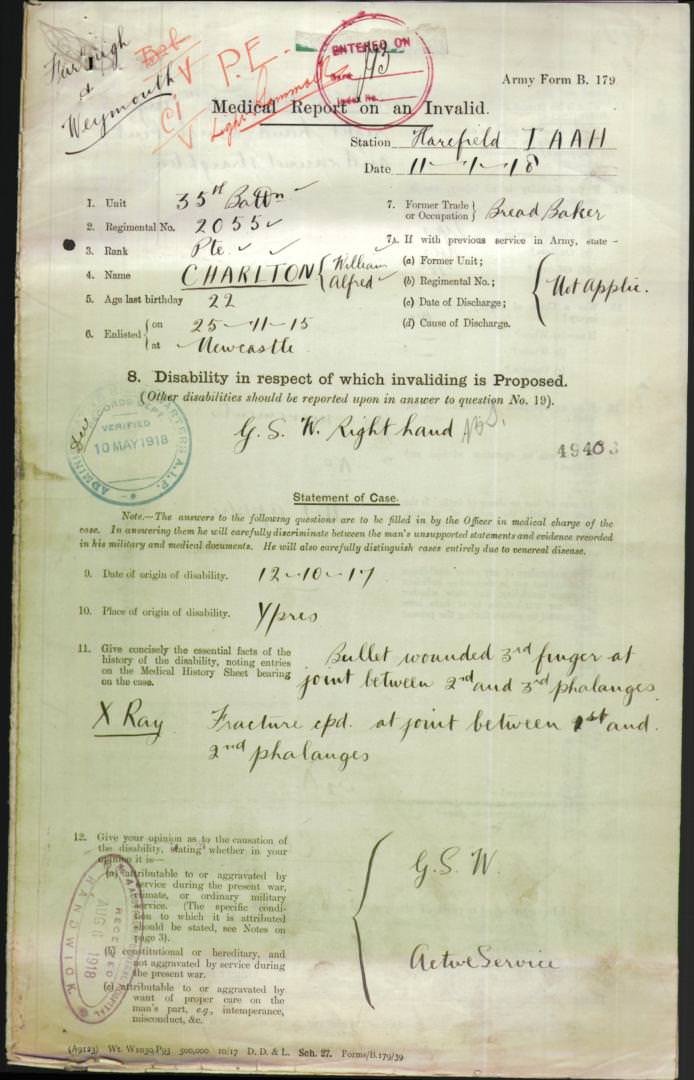 Weymouth
P.E.
V
C1
V
ENTERED ON
Army Form B. 179
Medical Report on an Invalid.
Station Harefield I A A H
Date 11-1-18
1. Unit 35th Battn
2. Regimental No. 2055
3. Rank Pte.
4. Name CHARLTON { William Alfred
5. Age last birthday 22
6. Enlisted { on 25-11-15
at Newcastle
7. Former Trade or Occupation } Bread Baker
7A. If with previous service in Army, state—
(a) Former Unit;
(b) Regimental No.;
(c) Date of Discharge;
(d) Cause of Discharge.
{ Not Applic.
8. Disability in respect of which invaliding is Proposed.
(Other disabilities should be reported upon in answer to question No. 19).
G. S. W. Right hand
RECORDS DEPT
VERIFIED
10 MAY 1918
Statement of Case.
Note.—The answers to the following questions are to be filled in by the Officer in medical charge of the
case. In answering them he will carefully discriminate between the man's unsupported statements and evidence recorded
in his military and medical documents. He will also carefully distinguish cases entirely due to venereal disease.
9. Date of origin of disability. 12-10-17
10. Place of origin of disability. Ypres
11. Give concisely the essential facts of the
history of the disability, noting entries
on the Medical History Sheet bearing
on the case.
Bullet wounded 3rd finger at
joint between 2nd and 3rd phalanges
X Ray Fracture cpd. at joint between 1st and
2nd phalanges
12. Give your opinion as to the causation of
the disability, stating whether in your
opinion it is—
(a) attributable to or aggravated by
service during the present war,
climate, or ordinary military
service. (The specific condi-
tion to which it is attributed
should be stated, see Notes on
page 3).
(b) constitutional or hereditary, and
not aggravated by service during
the present war.
(c) attributable to or aggravated by
want of proper care on the
man's part, e.g., intemperance,
misconduct, &c.
G. S. W.
Active Service
RECEIVED
AUG 6 1918
RANDWICK
(A9123) Wt. W1039/P93 500,000 10/17 D. D. & L. Sch. 27. Forms/B.179/39